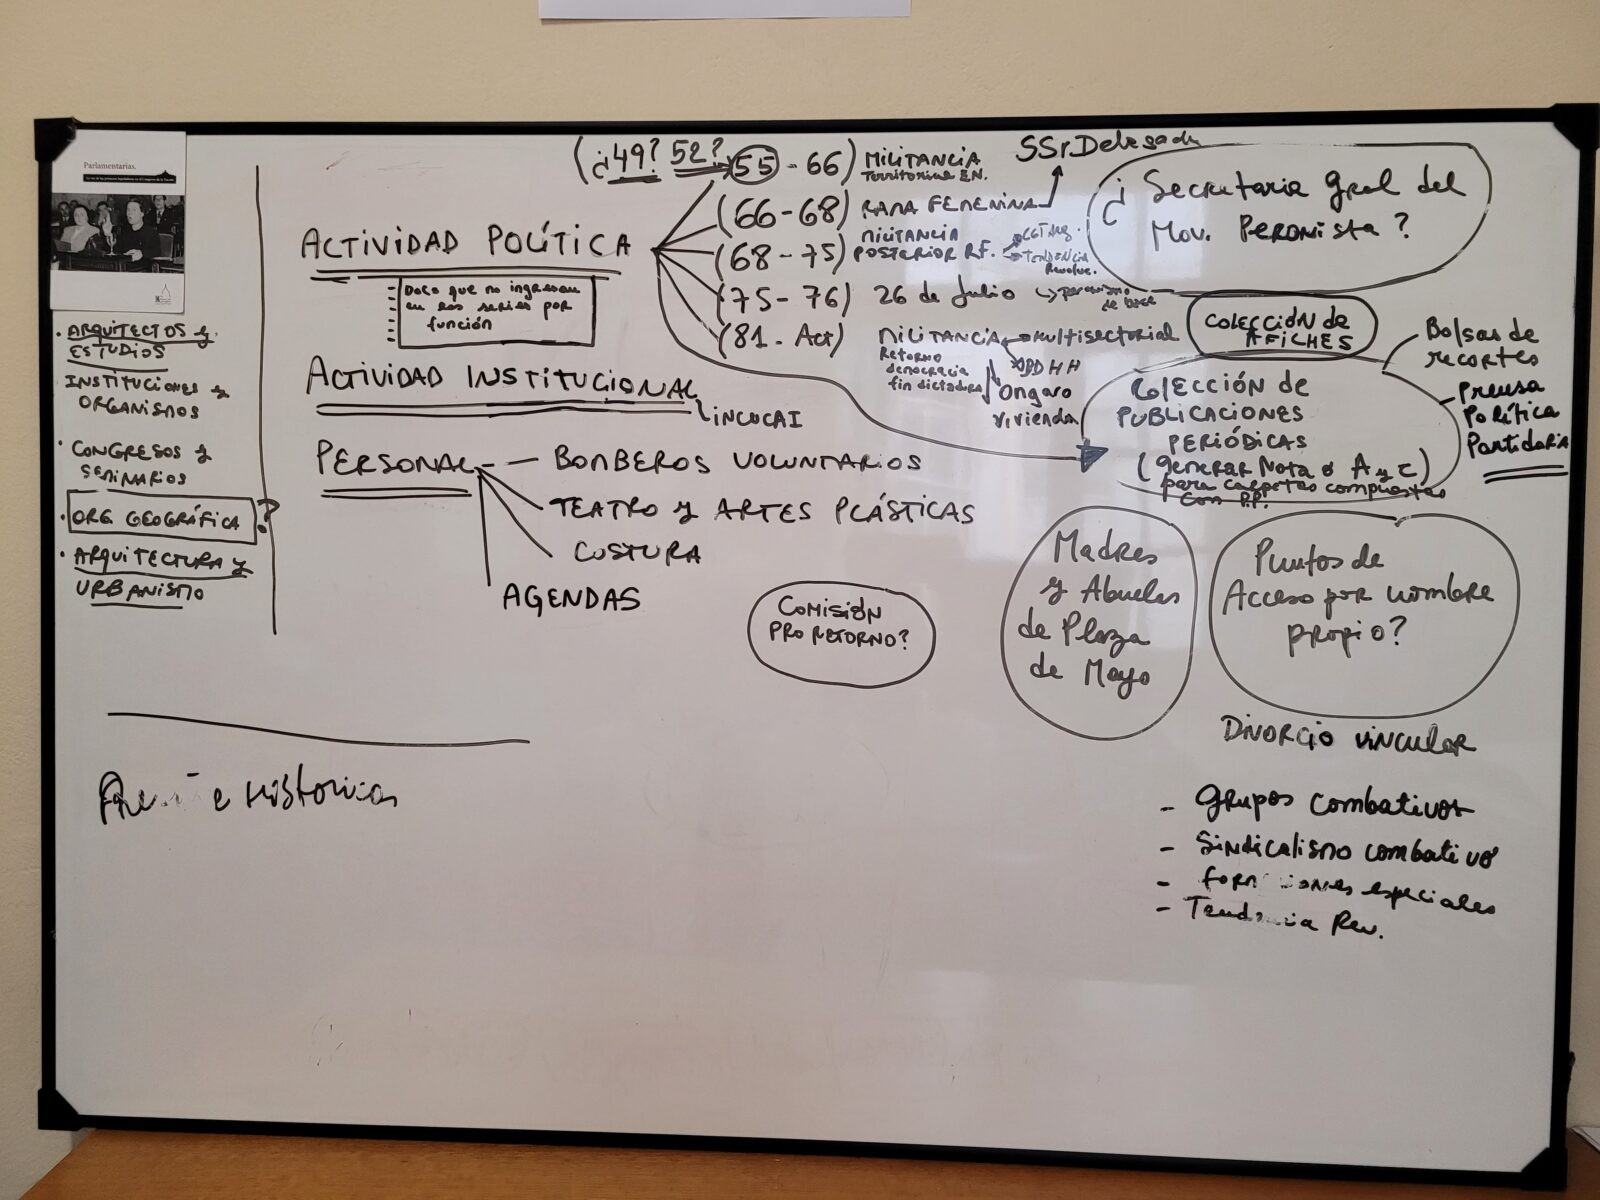 Parlamentarias.
· ARQUITECTOS y
ESTUDIOS
INSTITUCIONES y
ORGANISMOS
· CONGRESOS y
SEMINARIOS
· ORG. GEOGRÁFICA ?
· ARQUITECTURA y
URBANISMO
ACTIVIDAD POLÍTICA
Doco que no ingresan
en las series por
función
(¿49? 52? 55 - 66) MILITANCIA
Territorial EN.
(66-68) RAMA FEMENINA
SSr Delegada
(68-75) MILITANCIA
POSTERIOR RF.
CGT Arg.
TENDENCIA
Revoluc.
(75-76) 26 de Julio
peronismo
de base
(81-Act) MILITANCIA
Retorno
democracia
fin dictadura
multisectorial
DDHH
Ongaro
vivienda
ACTIVIDAD INSTITUCIONAL
INCUCAI
PERSONAL - - BOMBEROS VOLUNTARIOS
TEATRO y ARTES PLÁSTICAS
COSTURA
AGENDAS
¿ Secretaria Gral del
Mov. Peronista ?
COLECCIÓN de
AFICHES
COLECCIÓN DE
PUBLICACIONES
PERIÓDICAS
(generar Nota ó A y C)
para carpetas compuestas
con P.P.
Bolsas de
recortes
Prensa
Política
Partidaria
COMISIÓN
PRO RETORNO?
Madres
y Abuelas
de Plaza
de Mayo
Puntos de
Acceso por nombre
propio?
DIVORCIO vincular
- Grupos combativos
- Sindicalismo combativo
- especiales
- Rev.
e Historica